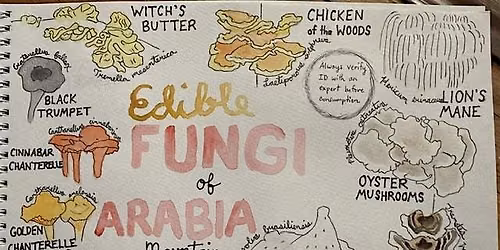 WITCH'S
BUTTER
Tremella mesenterica
CHICKEN
of the WOODS
Laetiporus
Always verify
ID with an
expert before
consumption.
Hericium erinaceus
LION'S
MANE
fallax
BLACK
TRUMPET
Edible
FUNGI
of
ARABIA
Cantharellus
CINNABAR
CHANTERELLE
ostreatus
OYSTER
MUSHROOMS
Cantharellus
GOLDEN
CHANTERELLE
Mountain
brasiliensis